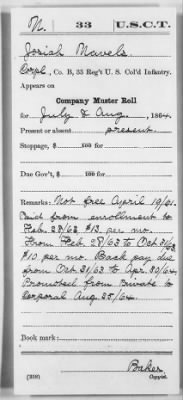 N. 33 U.S.C.T.
Josiah Mavels
Corpl, Co. B, 33 Reg't U. S. Col'd Infantry.
Appears on
Company Muster Roll
for July & Aug, 1864.
Present or absent present.
Stoppage, $ 100 for
Due Gov't, $ 100 for
Remarks: Not free April 19/61.
Paid from enrollment to
Feb. 28/63 $13. per mo.
From Feb. 28/63 to Oct 31/63
$10 per mo. Back pay due
from Oct. 31/63 to Apr. 30/64
Promoted from Private to
Corporal Aug 25/64.
Book mark:
Baker
(358) Copyist.